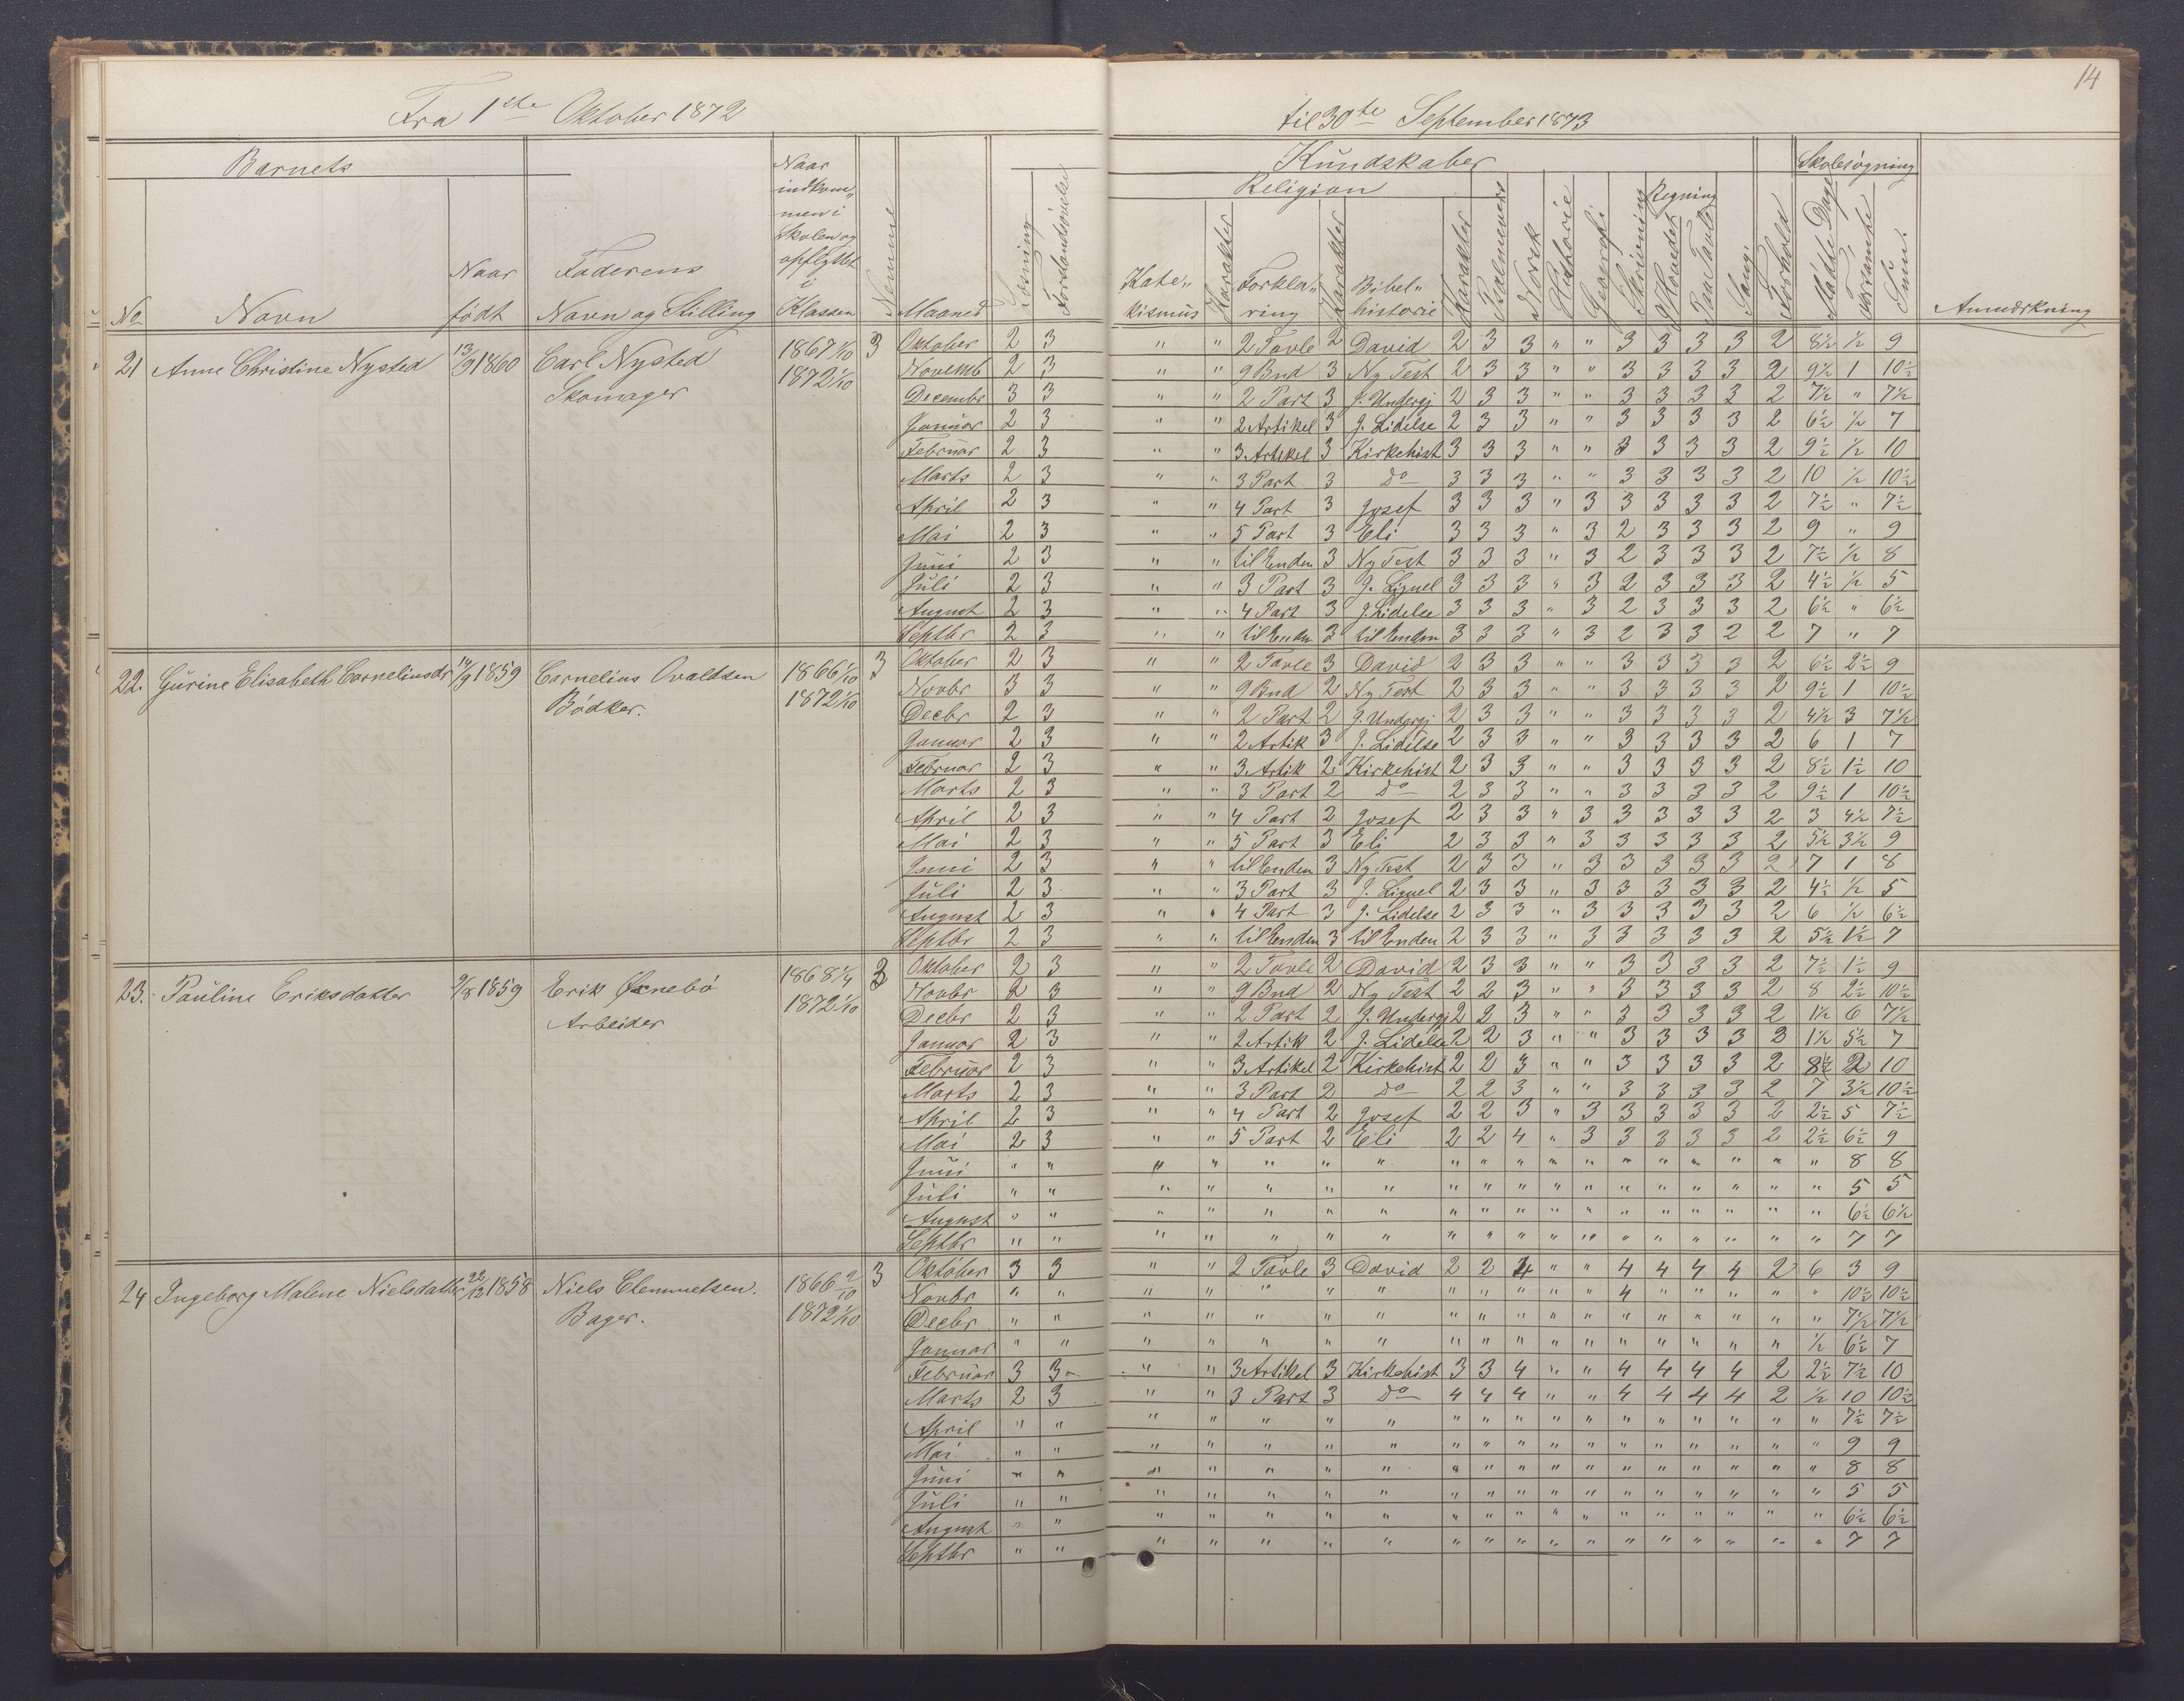 14
Fra 1ste Oktober 1872 til 30te September 1873
Barnets
No
Navn
Naar født
Faderens Navn og Stilling
Naar indkom„ men i Skolen og opflyttet i Klassen
Nemme
Maaned
Læsning
Forstandsøvelse
Kundskaber
Religion
Kate„ kismus
Karakter
Forkla„ ring
Karakter
Bibel„ historie
Karakter
Psalmevers
Norsk
Historie
Geografi
Skrivning
Regning
I Hovedet
Paa Tavle
Sang
Forhold
Skolesøgning
Mødte Dage
Forsømte
Sum.
Anmærkning
21 Anne Christine Nysted 13/9 1860 Carl Nysted Skomager 1867 1/10 1872 1/10 3
Oktober 2 3 " " 2 Tavle 2 David 2 3 3 " " 3 3 3 3 2 8½ ½ 9
Novemb 2 3 " " 9 Bud 3 Ny Test 2 3 3 " " 3 3 3 3 2 9½ 1 10½
Decembr 3 3 " " 2 Part 3 J. Undergj 2 3 3 " " 3 3 3 3 2 7½ " 7½
Januar 2 3 " " 2 Artikel 3 J. Lidelse 2 3 3 " " 3 3 3 3 2 6½ ½ 7
Februar 2 3 " " 3 Artikel 3 Kirkehist 3 3 3 " " 3 3 3 3 2 9½ ½ 10
Marts 2 3 " " 3 Part 3 Do 3 3 3 " " 3 3 3 3 2 10 ½ 10½
April 2 3 " " 4 Part 3 Josef 3 3 3 " 3 3 3 3 3 2 7½ " 7½
Mai 2 3 " " 5 Part 3 Eli 3 3 3 " 3 2 3 3 3 2 9 " 9
Juni 2 3 " " til Enden 3 Ny Test 3 3 3 " 3 2 3 3 3 2 7½ ½ 8
Juli 2 3 " " 3 Part 3 J. Lignel 3 3 3 " 3 2 3 3 3 2 4½ ½ 5
August 2 3 " " 4 Part 3 J. Lidelse 3 3 3 " 3 2 3 3 3 2 6½ " 6½
Septbr 2 3 " " til Enden 3 til Enden 3 3 3 " 3 2 3 3 2 2 7 " 7
22. Gurine Elisabeth Corneliusdr 14/9 1859 Cornelius Ovaldsen Bødker. 1866 1/10 1872 1/10 3
Oktober 2 3 " " 2 Tavle 3 David 2 3 3 " " 3 3 3 3 2 6½ 2½ 9
Novbr 3 3 " " 9 Bud 2 Ny Test 2 3 3 " " 3 3 3 3 2 9½ 1 10½
Decbr 2 3 " " 2 Part 2 J. Undergj. 2 3 3 " " 3 3 3 3 2 4½ 3 7½
Januar 2 3 " " 2 Artik 3 J. Lidelse 2 3 3 " " 3 3 3 3 2 6 1 7
Februar 2 3 " " 3 Artik 2 Kirkehist 2 3 3 " " 3 3 3 3 2 8½ 1½ 10
Marts 2 3 " " 3 Part 2 Do 2 3 3 " " 3 3 3 3 2 9½ 1 10½
April 2 3 " " 4 Part 2 Josef 2 3 3 " 3 3 3 3 3 2 3 4½ 7½
Mai 2 3 " " 5 Part 3 Eli 2 3 3 " 3 3 3 3 3 2 5½ 3½ 9
Juni 2 3 " " til Enden 3 Ny Test 2 3 3 " 3 3 3 3 3 2 7 1 8
Juli 2 3 " " 3 Part 3 J. Lignel 2 3 3 " 3 3 3 3 3 2 4½ ½ 5
August 2 3 " " 4 Part 3 J. Lidelse 2 3 3 " 3 3 3 3 3 2 6 ½ 6½
Septbr 2 3 " " til Enden 3 til Enden 2 3 3 " 3 3 3 3 3 2 5½ 1½ 7
23. Pauline Eriksdatter 9/8 1859 Erik Ørnebø Arbeider 1868 1/4 1872 1/10 3
Oktober 2 3 " " 2 Tavle 2 David 2 3 3 " " 3 3 3 3 2 7½ 1½ 9
Novbr 2 3 " " 9 Bud 2 Ny Test 2 2 3 " " 3 3 3 3 2 8 2½ 10½
Decbr 2 3 " " 2 Part 2 J. Undergj 2 2 3 " " 3 3 3 3 2 1½ 6 7½
Januar 2 3 " " 2 Artik 2 J. Lidelse 2 2 3 " " 3 3 3 3 3 1½ 5½ 7
Februar 2 3 " " 3 Artikel 2 Kirkehist 2 2 3 " " 3 3 3 3 2 8½ 2 10
Marts 2 3 " " 3 Part 2 Do 2 2 3 " " 3 3 3 3 2 7 3½ 10½
April 2 3 " " 4 Part 2 Josef 2 2 3 " 3 3 3 3 3 2 2½ 5 7½
Mai 2 3 " " 5 Part 2 Eli 2 2 4 " 3 3 3 3 3 2 2½ 6½ 9
Juni " " " " " " " " " " " " " " " " " " 8 8
Juli " " " " " " " " " " " " " " " " " " 5 5
August " " " " " " " " " " " " " " " " " " 6½ 6½
Septbr " " " " " " " " " " " " " " " " " " 7 7
24 Ingeborg Malene Nielsdatter 22/12 1858 Niels Clemmetsen. Bager. 1866 2/10 1872 1/10 3
Oktober 3 3 " " 2 Tavle 3 David 2 2 4 " " 4 4 4 4 2 6 3 9
Novbr " " " " " " " " " " " " 4 " " " " " 10½ 10½
Decbr " " " " " " " " " " " " " " " " " " 7½ 7½
Januar " " " " " " " " " " " " " " " " " ½ 6½ 7
Februar 3 3 " " 3 Artikel 3 Kirkehist 3 3 4 " " 4 4 4 4 2 2½ 7½ 10
Marts 2 3 " " 3 Part 3 Do 4 4 4 " " 4 4 4 4 2 ½ 10 10½
April " " " " " " " " " " " " " " " " " " 7½ 7½
Mai " " " " " " " " " " " " " " " " " " 9 9
Juni " " " " " " " " " " " " " " " " " " 8 8
Juli " " " " " " " " " " " " " " " " " " 5 5
August " " " " " " " " " " " " " " " " " " 6½ 6½
Septbr " " " " " " " " " " " " " " " " " " 7 7